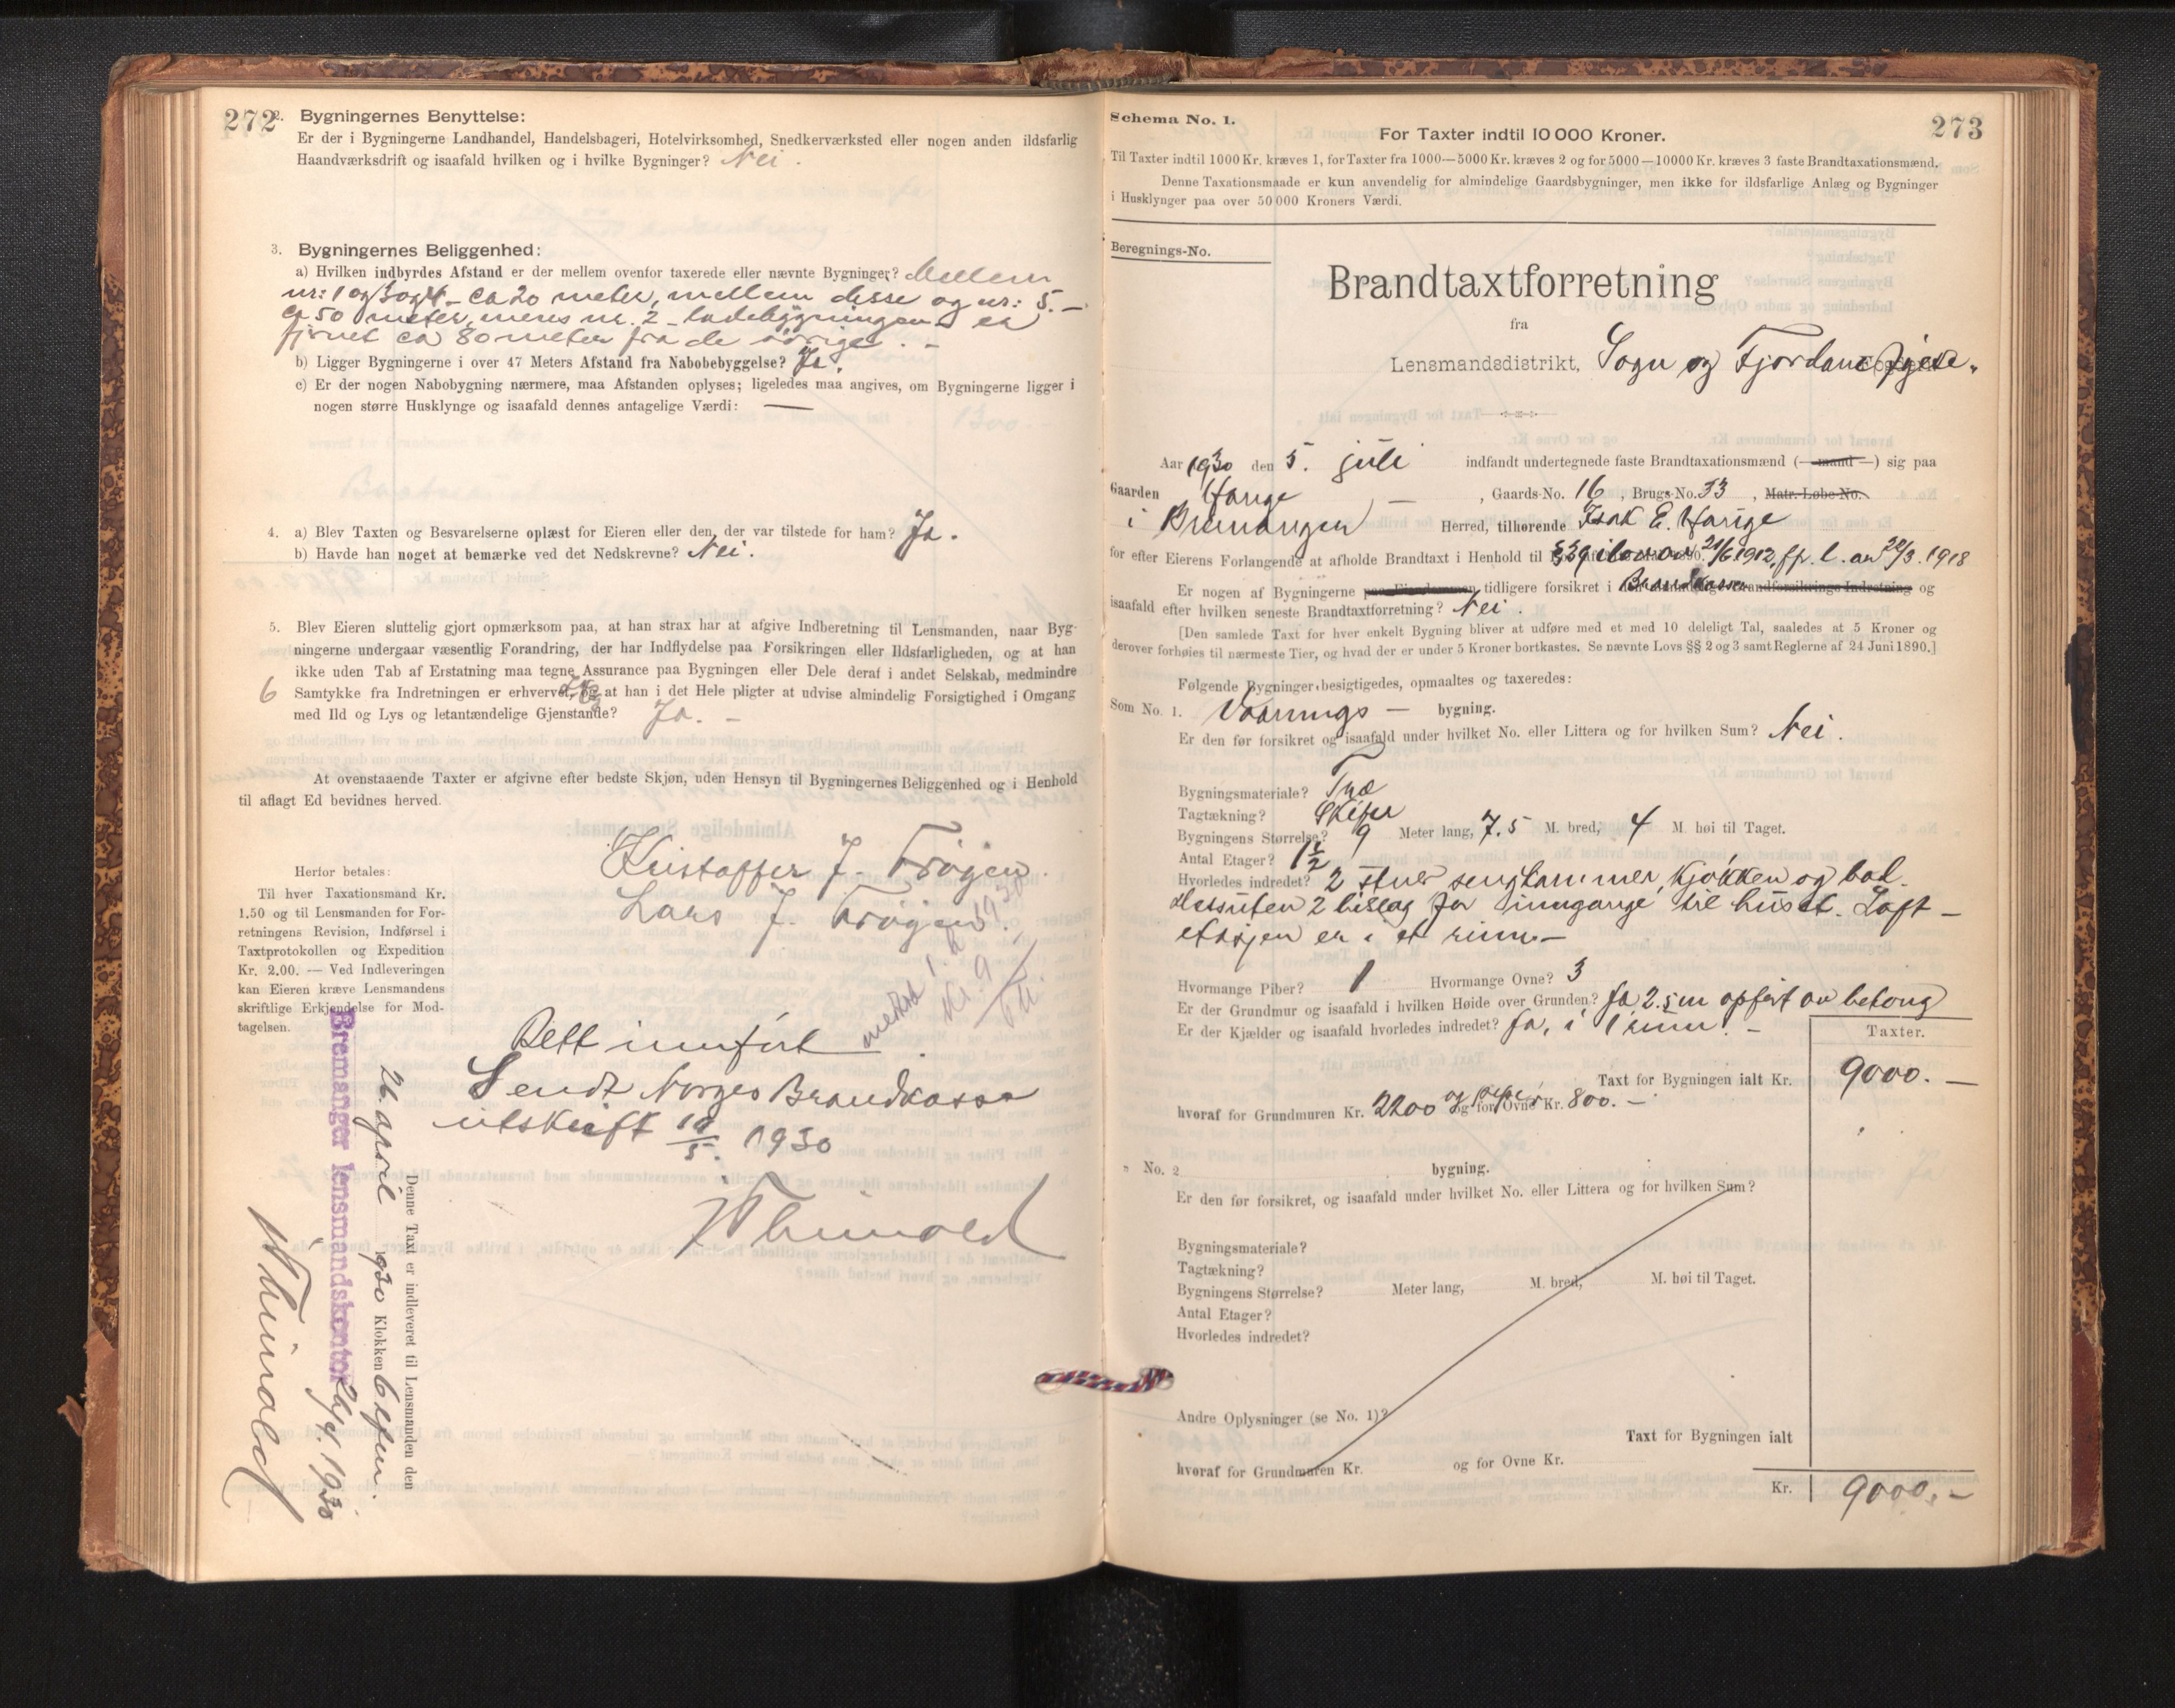 272
2. Bygningernes Benyttelse:
Er der i Bygningerne Landhandel, Handelsbageri, Hotelvirksomhed, Snedkerværksted eller nogen anden ildsfarlig
Haandværksdrift og isaafald hvilken og i hvilke Bygninger? Nei.
3. Bygningernes Beliggenhed:
a) Hvilken indbyrdes Afstand er der mellem ovenfor taxerede eller nævnte Bygninger? Mellem
nr: 1 og 3 og 4 - ca 20 meter, mellem disse og nr: 5. -
ca 50 meter, meres nr. 2 - ladebygningen - er
fjernet ca 80 meter fra de øvrige. -
b) Ligger Bygningerne i over 47 Meters Afstand fra Nabobebyggelse? Ja.
c) Er der nogen Nabobygning nærmere, maa Afstanden oplyses; ligeledes maa angives, om Bygningerne ligger i
nogen større Husklynge og isaafald dennes antagelige Værdi: —
4. a) Blev Taxten og Besvarelserne oplæst for Eieren eller den, der var tilstede for ham? Ja.
b) Havde han noget at bemærke ved det Nedskrevne? Nei.
5. Blev Eieren sluttelig gjort opmærksom paa, at han strax har at afgive Indberetning til Lensmanden, naar Byg-
ningerne undergaar væsentlig Forandring, der har Indflydelse paa Forsikringen eller Ildsfarligheden, og at han
ikke uden Tab af Erstatning maa tegne Assurance paa Bygningen eller Dele deraf i andet Selskab, medmindre
6 Samtykke fra Indretningen er erhvervet, og at han i det Hele pligter at udvise almindelig Forsigtighed i Omgang
med Ild og Lys og letantændelige Gjenstande? Ja. -
At ovenstaaende Taxter er afgivne efter bedste Skjøn, uden Hensyn til Bygningernes Beliggenhed og i Henhold
til aflagt Ed bevidnes herved.
Kristoffer J. Frøyen.
Lars J. Frøyen.
Herfor betales:
Til hver Taxationsmand Kr.
1.50 og til Lensmanden for For-
retningens Revision, Indførsel i
Taxtprotokollen og Expedition
Kr. 2.00. — Ved Indleveringen
kan Eieren kræve Lensmandens
skriftlige Erkjendelse for Mod-
tagelsen.
Rett innført
Sendt Norges Brandkasse
utskrift 10/5. 1930
Denne Taxt er indleveret til Lensmanden den
26. april 1930 Klokken 6 eftm.
Bremanger lensmandskontor 29/4. 1930
273
Schema No. 1.
For Taxter indtil 10 000 Kroner.
Til Taxter indtil 1000 Kr. kræves 1, for Taxter fra 1000—5000 Kr. kræves 2 og for 5000—10000 Kr. kræves 3 faste Brandtaxationsmænd.
Denne Taxationsmaade er kun anvendelig for almindelige Gaardsbygninger, men ikke for ildsfarlige Anlæg og Bygninger
i Husklynger paa over 50 000 Kroners Værdi.
Beregnings-No.
Brandtaxtforretning
fra
Lensmandsdistrikt, Sogn og Fjordane fylke.
Aar 1930 den 5. juli indfandt undertegnede faste Brandtaxationsmænd (— mand —) sig paa
Gaarden Hauge — , Gaards-No. 16 , Brugs-No. 33 , Matr.-Løbe-No.
i Bremangen Herred, tilhørende Isak E. Hauge
for efter Eierens Forlangende at afholde Brandtaxt i Henhold til § 39 i lov av 21/6 1912, fr. l. av 20/3. 1918
Er nogen af Bygningerne tidligere forsikret i Brandkassen og
isaafald efter hvilken seneste Brandtaxtforretning? Nei.
[Den samlede Taxt for hver enkelt Bygning bliver at udføre med et med 10 deleligt Tal, saaledes at 5 Kroner og
derover forhøies til nærmeste Tier, og hvad der er under 5 Kroner bortkastes. Se nævnte Lovs §§ 2 og 3 samt Reglerne af 24 Juni 1890.]
Følgende Bygninger besigtigedes, opmaaltes og taxeredes:
Som No. 1. Vaanings — bygning.
Er den før forsikret og isaafald under hvilket No. eller Littera og for hvilken Sum? Nei.
Bygningsmateriale? Træ
Tagtækning? Skifer
Bygningens Størrelse? 9 Meter lang, 7.5 M. bred, 4 M. høi til Taget.
Antal Etager? 1 1/2
Hvorledes indredet? 2 stuer sengkammer, kjøkken og bad.
dessuten 2 bislag for inngange til huset. Loft -
etasjen er i et rum. -
Hvormange Piber? 1 Hvormange Ovne? 3
Er der Grundmur og isaafald i hvilken Høide over Grunden? Ja 2.5 m opført av betong
Er der Kjælder og isaafald hvorledes indredet? Ja, i 1 rum. -
Taxter.
Taxt for Bygningen ialt Kr. 9000. -
hvoraf for Grundmuren Kr. 2200 og for Ovne og piper Kr. 800. -
" No. 2 bygning.
Er den før forsikret, og isaafald under hvilket No. eller Littera og for hvilken Sum?
Bygningsmateriale?
Tagtækning?
Bygningens Størrelse? Meter lang, M. bred, M. høi til Taget.
Antal Etager?
Hvorledes indredet?
Andre Oplysninger (se No. 1)?
Taxt for Bygningen ialt
hvoraf for Grundmuren Kr. og for Ovne Kr.
Kr. 9000. -